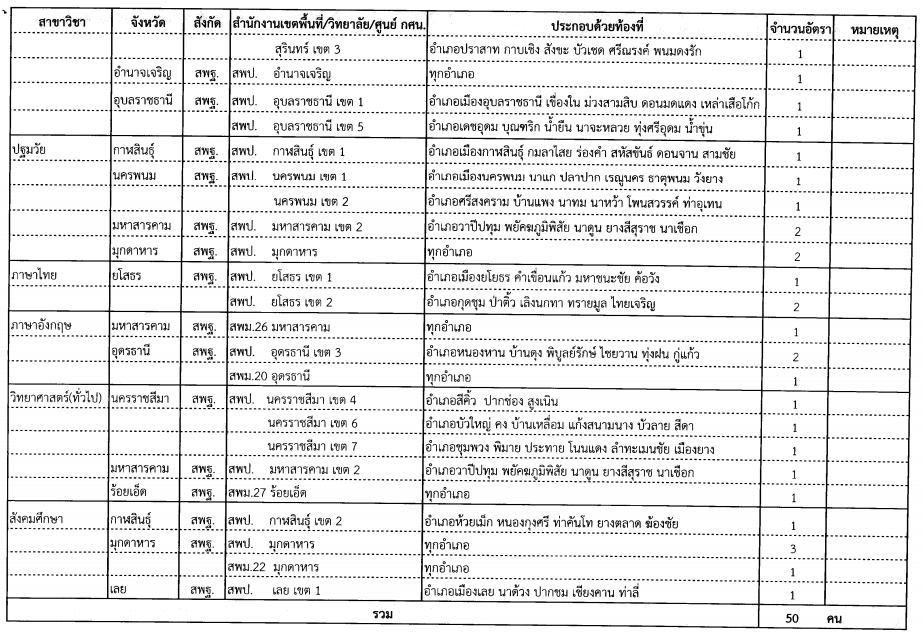 สาขาวิชา จังหวัด สังกัด สำนักงานเขตพื้นที่/วิทยาลัย/ศูนย์ กศน. ประกอบด้วยท้องที่ จำนวนอัตรา หมายเหตุ
สุรินทร์ เขต 3 อำเภอปราสาท กาบเชิง สังขะ บัวเชด ศรีณรงค์ พนมดงรัก 1
อำนาจเจริญ สพฐ. สพป. อำนาจเจริญ ทุกอำเภอ 1
อุบลราชธานี สพฐ. สพป. อุบลราชธานี เขต 1 อำเภอเมืองอุบลราชธานี เขื่องใน ม่วงสามสิบ ดอนมดแดง เหล่าเสือโก้ก 1
สพป. อุบลราชธานี เขต 5 อำเภอเดชอุดม บุณฑริก น้ำยืน นาจะหลวย ทุ่งศรีอุดม น้ำขุ่น 1
ปฐมวัย กาฬสินธุ์ สพฐ. สพป. กาฬสินธุ์ เขต 1 อำเภอเมืองกาฬสินธุ์ กมลาไสย ร่องคำ สหัสขันธ์ ดอนจาน สามชัย 1
นครพนม สพฐ. สพป. นครพนม เขต 1 อำเภอเมืองนครพนม นาแก ปลาปาก เรณูนคร ธาตุพนม วังยาง 1
นครพนม เขต 2 อำเภอศรีสงคราม บ้านแพง นาทม นาหว้า โพนสวรรค์ ท่าอุเทน 1
มหาสารคาม สพฐ. สพป. มหาสารคาม เขต 2 อำเภอวาปีปทุม พยัคฆภูมิพิสัย นาดูน ยางสีสุราช นาเชือก 2
มุกดาหาร สพฐ. สพป. มุกดาหาร ทุกอำเภอ 2
ภาษาไทย ยโสธร สพฐ. สพป. ยโสธร เขต 1 อำเภอเมืองยโยธร คำเขื่อนแก้ว มหาชนะชัย ค้อวัง 1
สพป. ยโสธร เขต 2 อำเภอกุดชุม ป่าติ้ว เลิงนกทา ทรายมูล ไทยเจริญ 2
ภาษาอังกฤษ มหาสารคาม สพฐ. สพม.26 มหาสารคาม ทุกอำเภอ 1
อุดรธานี สพฐ. สพป. อุดรธานี เขต 3 อำเภอหนองหาน บ้านดุง พิบูลย์รักษ์ ไชยวาน ทุ่งฝน กู่แก้ว 2
สพม.20 อุดรธานี ทุกอำเภอ 1
วิทยาศาสตร์(ทั่วไป) นครราชสีมา สพฐ. สพป. นครราชสีมา เขต 4 อำเภอสีคิ้ว ปากช่อง สูงเนิน 1
นครราชสีมา เขต 6 อำเภอบัวใหญ่ คง บ้านเหลื่อม แก้งสนามนาง บัวลาย สีดา 1
นครราชสีมา เขต 7 อำเภอชุมพวง พิมาย ประทาย โนนแดง ลำทะเมนชัย เมืองยาง 1
มหาสารคาม สพฐ. สพป. มหาสารคาม เขต 2 อำเภอวาปีปทุม พยัคฆภูมิพิสัย นาดูน ยางสีสุราช นาเชือก 1
ร้อยเอ็ด สพฐ. สพม.27 ร้อยเอ็ด ทุกอำเภอ 1
สังคมศึกษา กาฬสินธุ์ สพฐ. สพป. กาฬสินธุ์ เขต 2 อำเภอห้วยเม็ก หนองกุงศรี ท่าคันโท ยางตลาด ฆ้องชัย 1
มุกดาหาร สพฐ. สพป. มุกดาหาร ทุกอำเภอ 3
สพม.22 มุกดาหาร ทุกอำเภอ 1
เลย สพฐ. สพป. เลย เขต 1 อำเภอเมืองเลย นาด้วง ปากชม เชียงคาน ท่าลี่ 1
รวม 50 คน